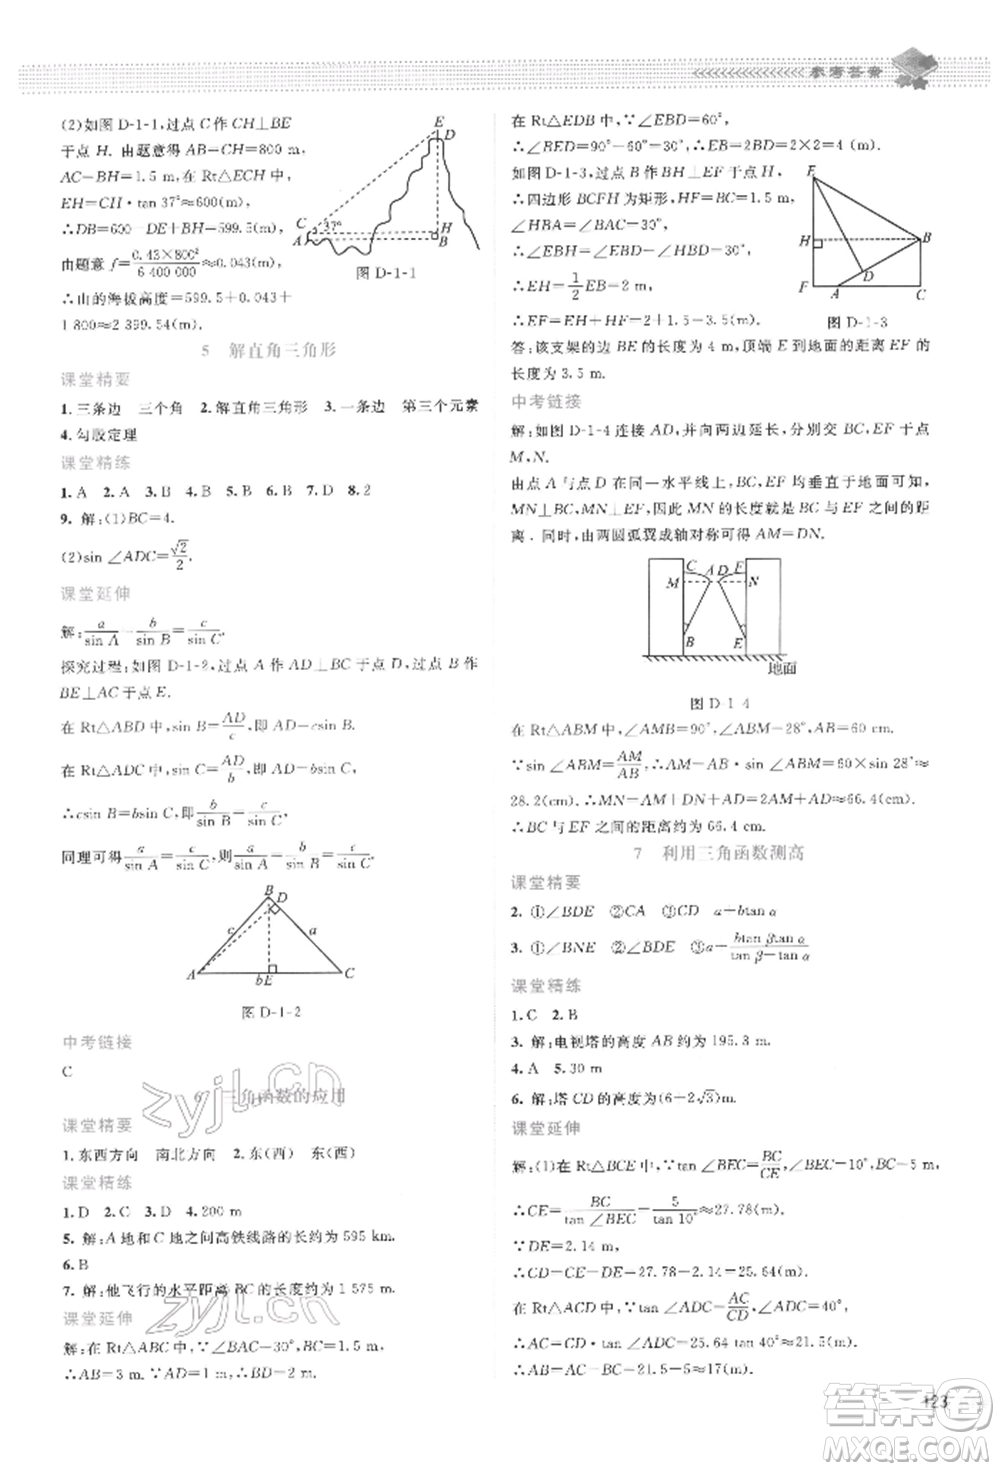 参考答案
(2)如图 D-1-1,过点 C 作 CH⊥BE
于点 H. 由题意得 AB=CH=800 m,
AC=BH=1.5 m,在 Rt△ECH 中,
EH=CH·tan 37°≈600(m),
∴DB=600-DE+BH=599.5(m),
由题意 f=0.43×800²/6 400 000≈0.043(m),
∴山的海拔高度=599.5+0.043+
1 800≈2 399.54(m).
E
D
C
37°
H
A
B
图 D-1-1
5 解直角三角形
课堂精要
1.三条边 三个角 2.解直角三角形 3.一条边 第三个元素
4.勾股定理
课堂精练
1.A 2.A 3.B 4.B 5.B 6.B 7.D 8.2
9. 解:(1)BC=4.
(2)sin ∠ADC=√2/2.
课堂延伸
解:a/sin A=b/sin B=c/sin C.
探究过程:如图 D-1-2,过点 A 作 AD⊥BC 于点 D,过点 B 作
BE⊥AC 于点 E.
在 Rt△ABD 中,sin B=AD/c,即 AD=csin B,
在 Rt△ADC 中,sin C=AD/b,即 AD=bsin C,
∴csin B=bsin C,即 b/sin B=c/sin C,
同理可得 a/sin A=c/sin C,则 a/sin A=b/sin B=c/sin C.
B
D
c
a
A
b
E
C
图 D-1-2
中考链接
C
6 三角函数的应用
课堂精要
1.东西方向 南北方向 2.东 东南
课堂精练
1.D 2.C 3.D 4.200 m
5. 解:A 地和 C 地之间高铁线路的长约为 595 km.
6.B
7. 解:他飞行的水平距离 BC 的长度约为 1 575 m.
课堂延伸
解:在 Rt△ABC 中,∵∠BAC=30°,BC=1.5 m,
∴AB=3 m. ∵AD=1 m,∴BD=2 m.
在 Rt△EDB 中,∵∠EBD=60°,
∴∠BED=90°-60°=30°,∴EB=2BD=2×2=4(m).
如图 D-1-3,过点 B 作 BH⊥EF 于点 H,
∴四边形 BCFH 为矩形,HF=BC=1.5 m,
∠HBA=∠BAC=30°,
∴∠EBH=∠EBD-∠HBD=30°,
∴EH=1/2EB=2(m),
∴EF=EH+HF=2+1.5=3.5(m).
E
H
B
D
F
A
C
图 D-1-3
答:该支架的边 BE 的长度为 4 m,顶端 E 到地面的距离 EF 的
长度为 3.5 m.
中考链接
解:如图 D-1-4 连接 AD,并向两边延长,分别交 BC,EF 于点
M,N.
由点 A 与点 D 在同一水平线上,BC,EF 均垂直于地面可知,
MN⊥BC,MN⊥EF,因此 MN 的长度就是 BC 与 EF 之间的距
离. 同时,由两圆弧翼成轴对称可得 AM=DN.
C
A
D
F
M
N
B
E
地面
图 D-1-4
在 Rt△ABM 中,∠AMB=90°,∠ABM=28°,
∵sin ∠ABM=AM/AB,∴AM=AB·sin ∠ABM=60×sin 28°≈
28.2(cm). ∴MN=AM+DN+AD=2AM+AD≈66.4(cm).
∴BC 与 EF 之间的距离约为 66.4 cm.
7 利用三角函数测高
课堂精要
2. ①∠BDE ②CA ③CD a+btan α
3. ①∠BNE ②∠BDE ③a+btan βtan α/tan β-tan α
课堂精练
1.C 2.B
3. 解:电视塔的高度 AB 约为 195.3 m.
4.A 5.30 m
6. 解:塔 CD 的高度为(6+2√3)m.
课堂延伸
解:(1)在 Rt△BCE 中,∵tan ∠BEC=BC/CE,∠BEC=10°,BC=5 m,
∴CE=BC/tan ∠BEC=5/tan 10°≈27.78(m).
∵DE=2.14 m,
∴CD=CE-DE=27.78-2.14=25.64(m).
在 Rt△ACD 中,∵tan ∠ADC=AC/CD,∠ADC=40°,
∴AC=CD·tan ∠ADC=25.64·tan 40°≈21.5(m).
∴AB=AC-BC=21.5-5≈17(m).
123
zyjl.cn
zyjl.cn
答案卷
MXQE.COM